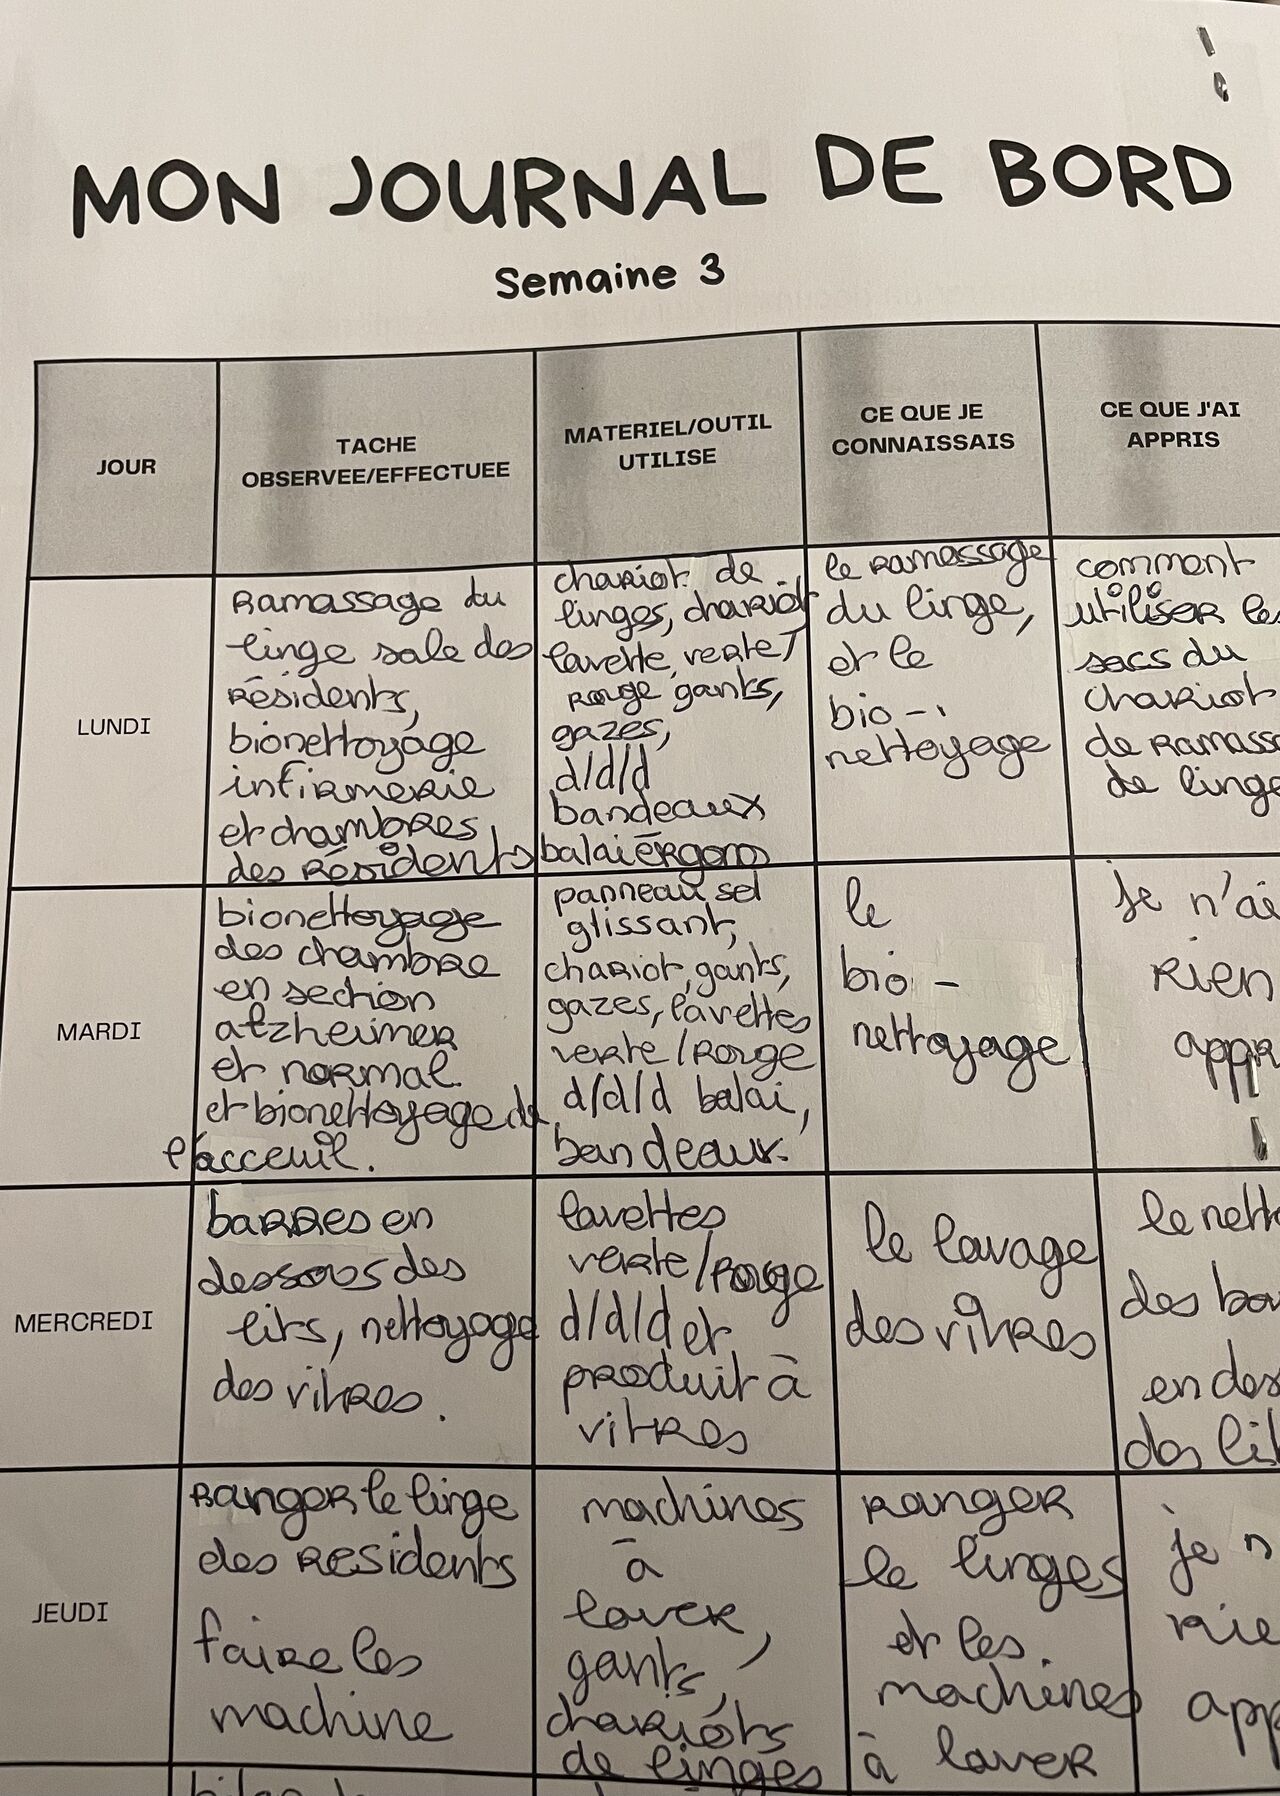 MON JOURNAL DE BORD
Semaine 3
JOUR
TACHE
OBSERVEE/EFFECTUEE
MATERIEL/OUTIL
UTILISE
CE QUE JE
CONNAISSAIS
CE QUE J'AI
APPRIS
LUNDI
Ramassage du
linge sale des
résidents,
bionettoyage
infirmerie
et chambres
des résidents
chariot de
linges, chariot
lavette verte/
rouge gants,
gazes,
d/d/d
bandeaux
balai ērgono
le ramassage
du linge,
et le
bio-
nettoyage
comment
utiliser les
sacs du
chariot
de ramass
de linge
MARDI
bionettoyage
des chambre
en section
alzheimer
et normal.
et bionettoyage de
l'acceuil.
panneau sol
glissant,
chariot, gants,
gazes, lavettes
verte/rouge
d/d/d balai,
bandeaux.
le
bio-
nettoyage
je n'ai
rien
appr
MERCREDI
barres en
dessous des
lits, nettoyage
des vitres.
lavettes
verte/rouge
d/d/d et
produit à
vitres
le lavage
des vitres
le nett
des ba
en des
des lit
JEUDI
Ranger le linge
des residents
faire les
machine
machines
à
laver,
gants,
chariots
de linges
ranger
le linges
et les
machines
à laver
je n
rie
app